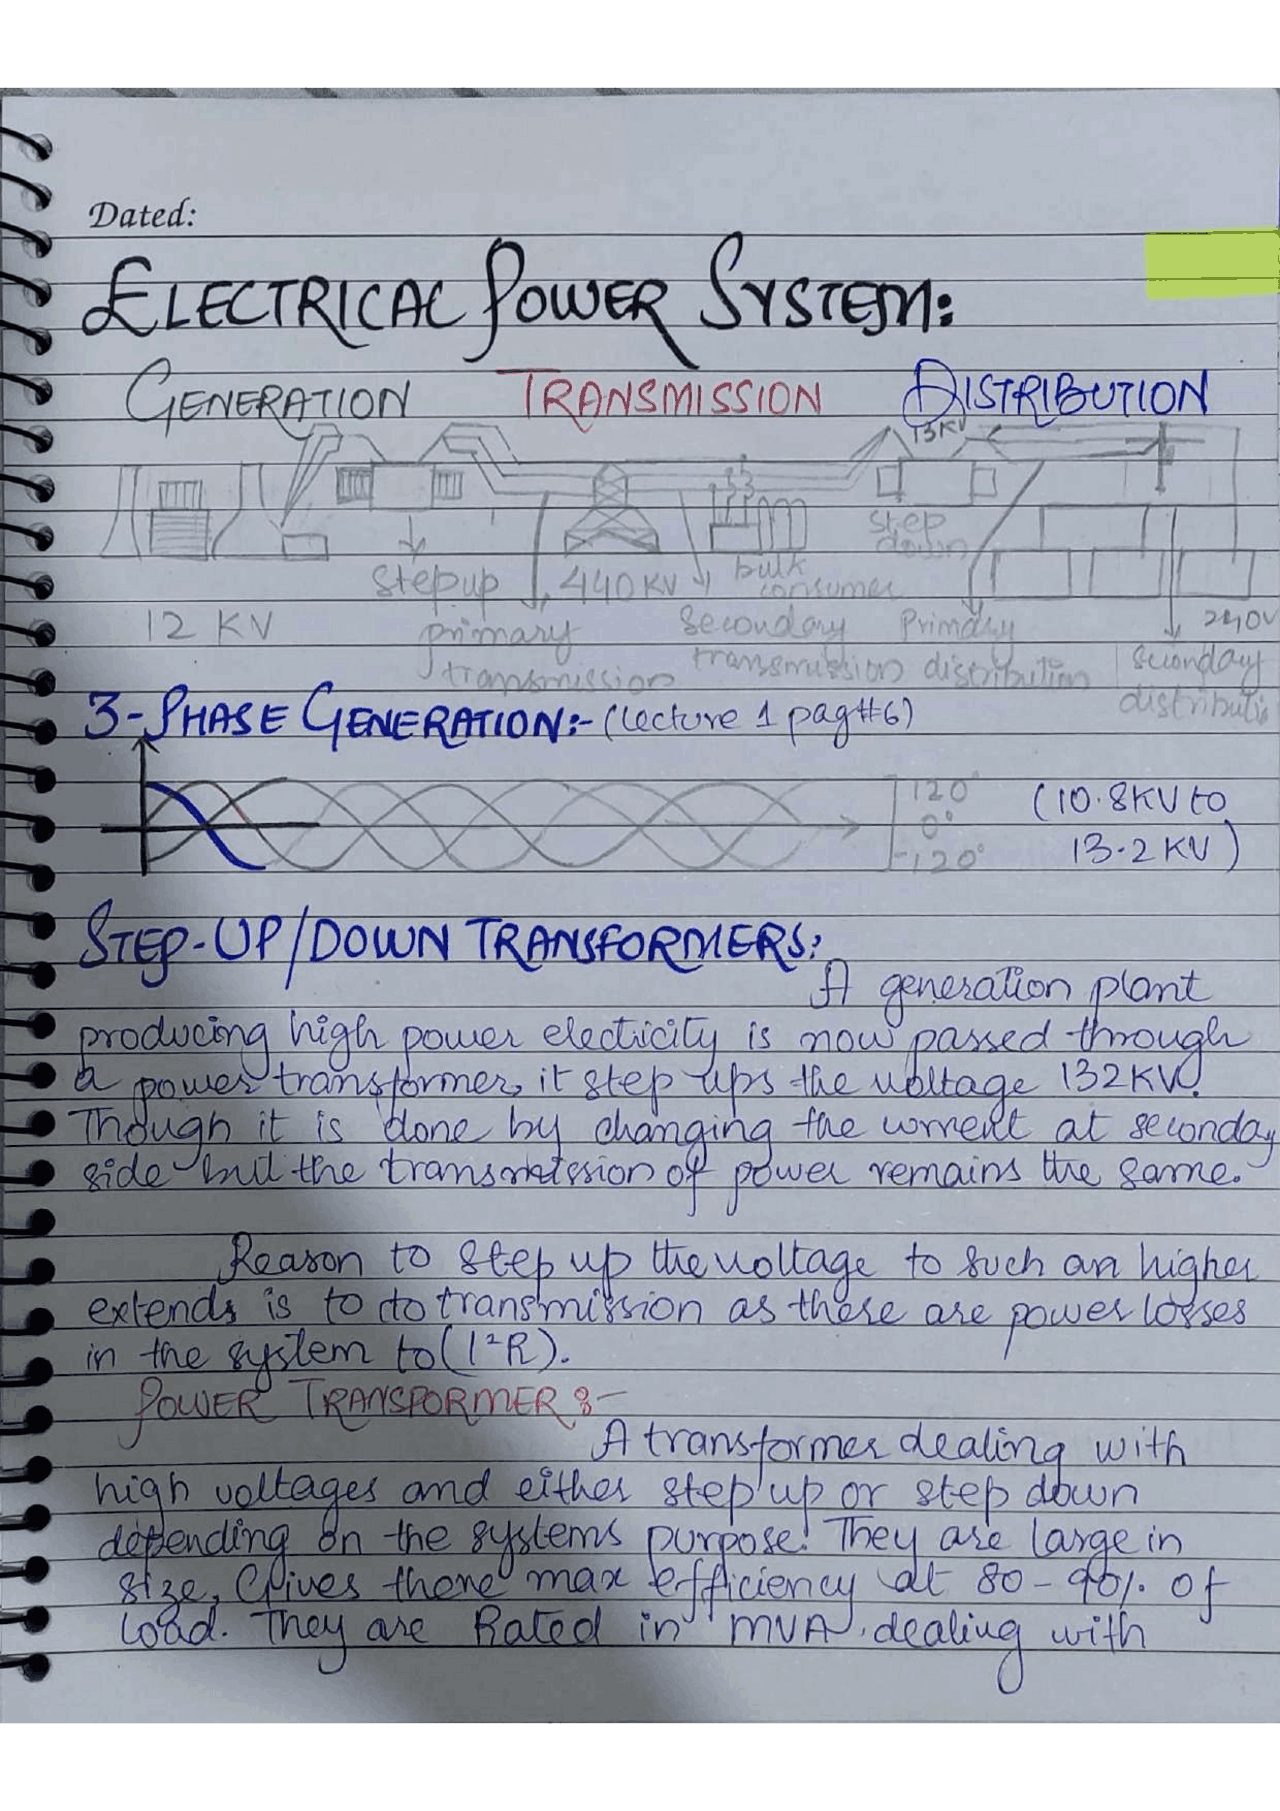 Dated:
ELECTRICAL POWER SYSTEM:
GENERATION TRANSMISSION DISTRIBUTION
13KV
step
down
stepup 440KV bulk
consumer
12 KV primary secondary Primary 240V
transmission transmission distribution seconday
distributi
3-PHASE GENERATION:- (lecture 1 pag#6)
120° (10.8KV to
0°
-120° 13.2KV)
STEP-UP/DOWN TRANSFORMERS:
A generation plant
producing high power electricity is now passed through
a power transformer, it step ups the voltage 132KV.
Though it is done by changing the current at seconday
side but the transmission of power remains the same.
Reason to step up the voltage to such an higher
extends is to do transmission as there are power losses
in the system to (I²R).
POWER TRANSFORMER:-
A transformer dealing with
high voltages and either step up or step down
depending on the systems purpose. They are large in
size, Gives there max efficiency at 80-90% of
load. They are Rated in MVA, dealing with